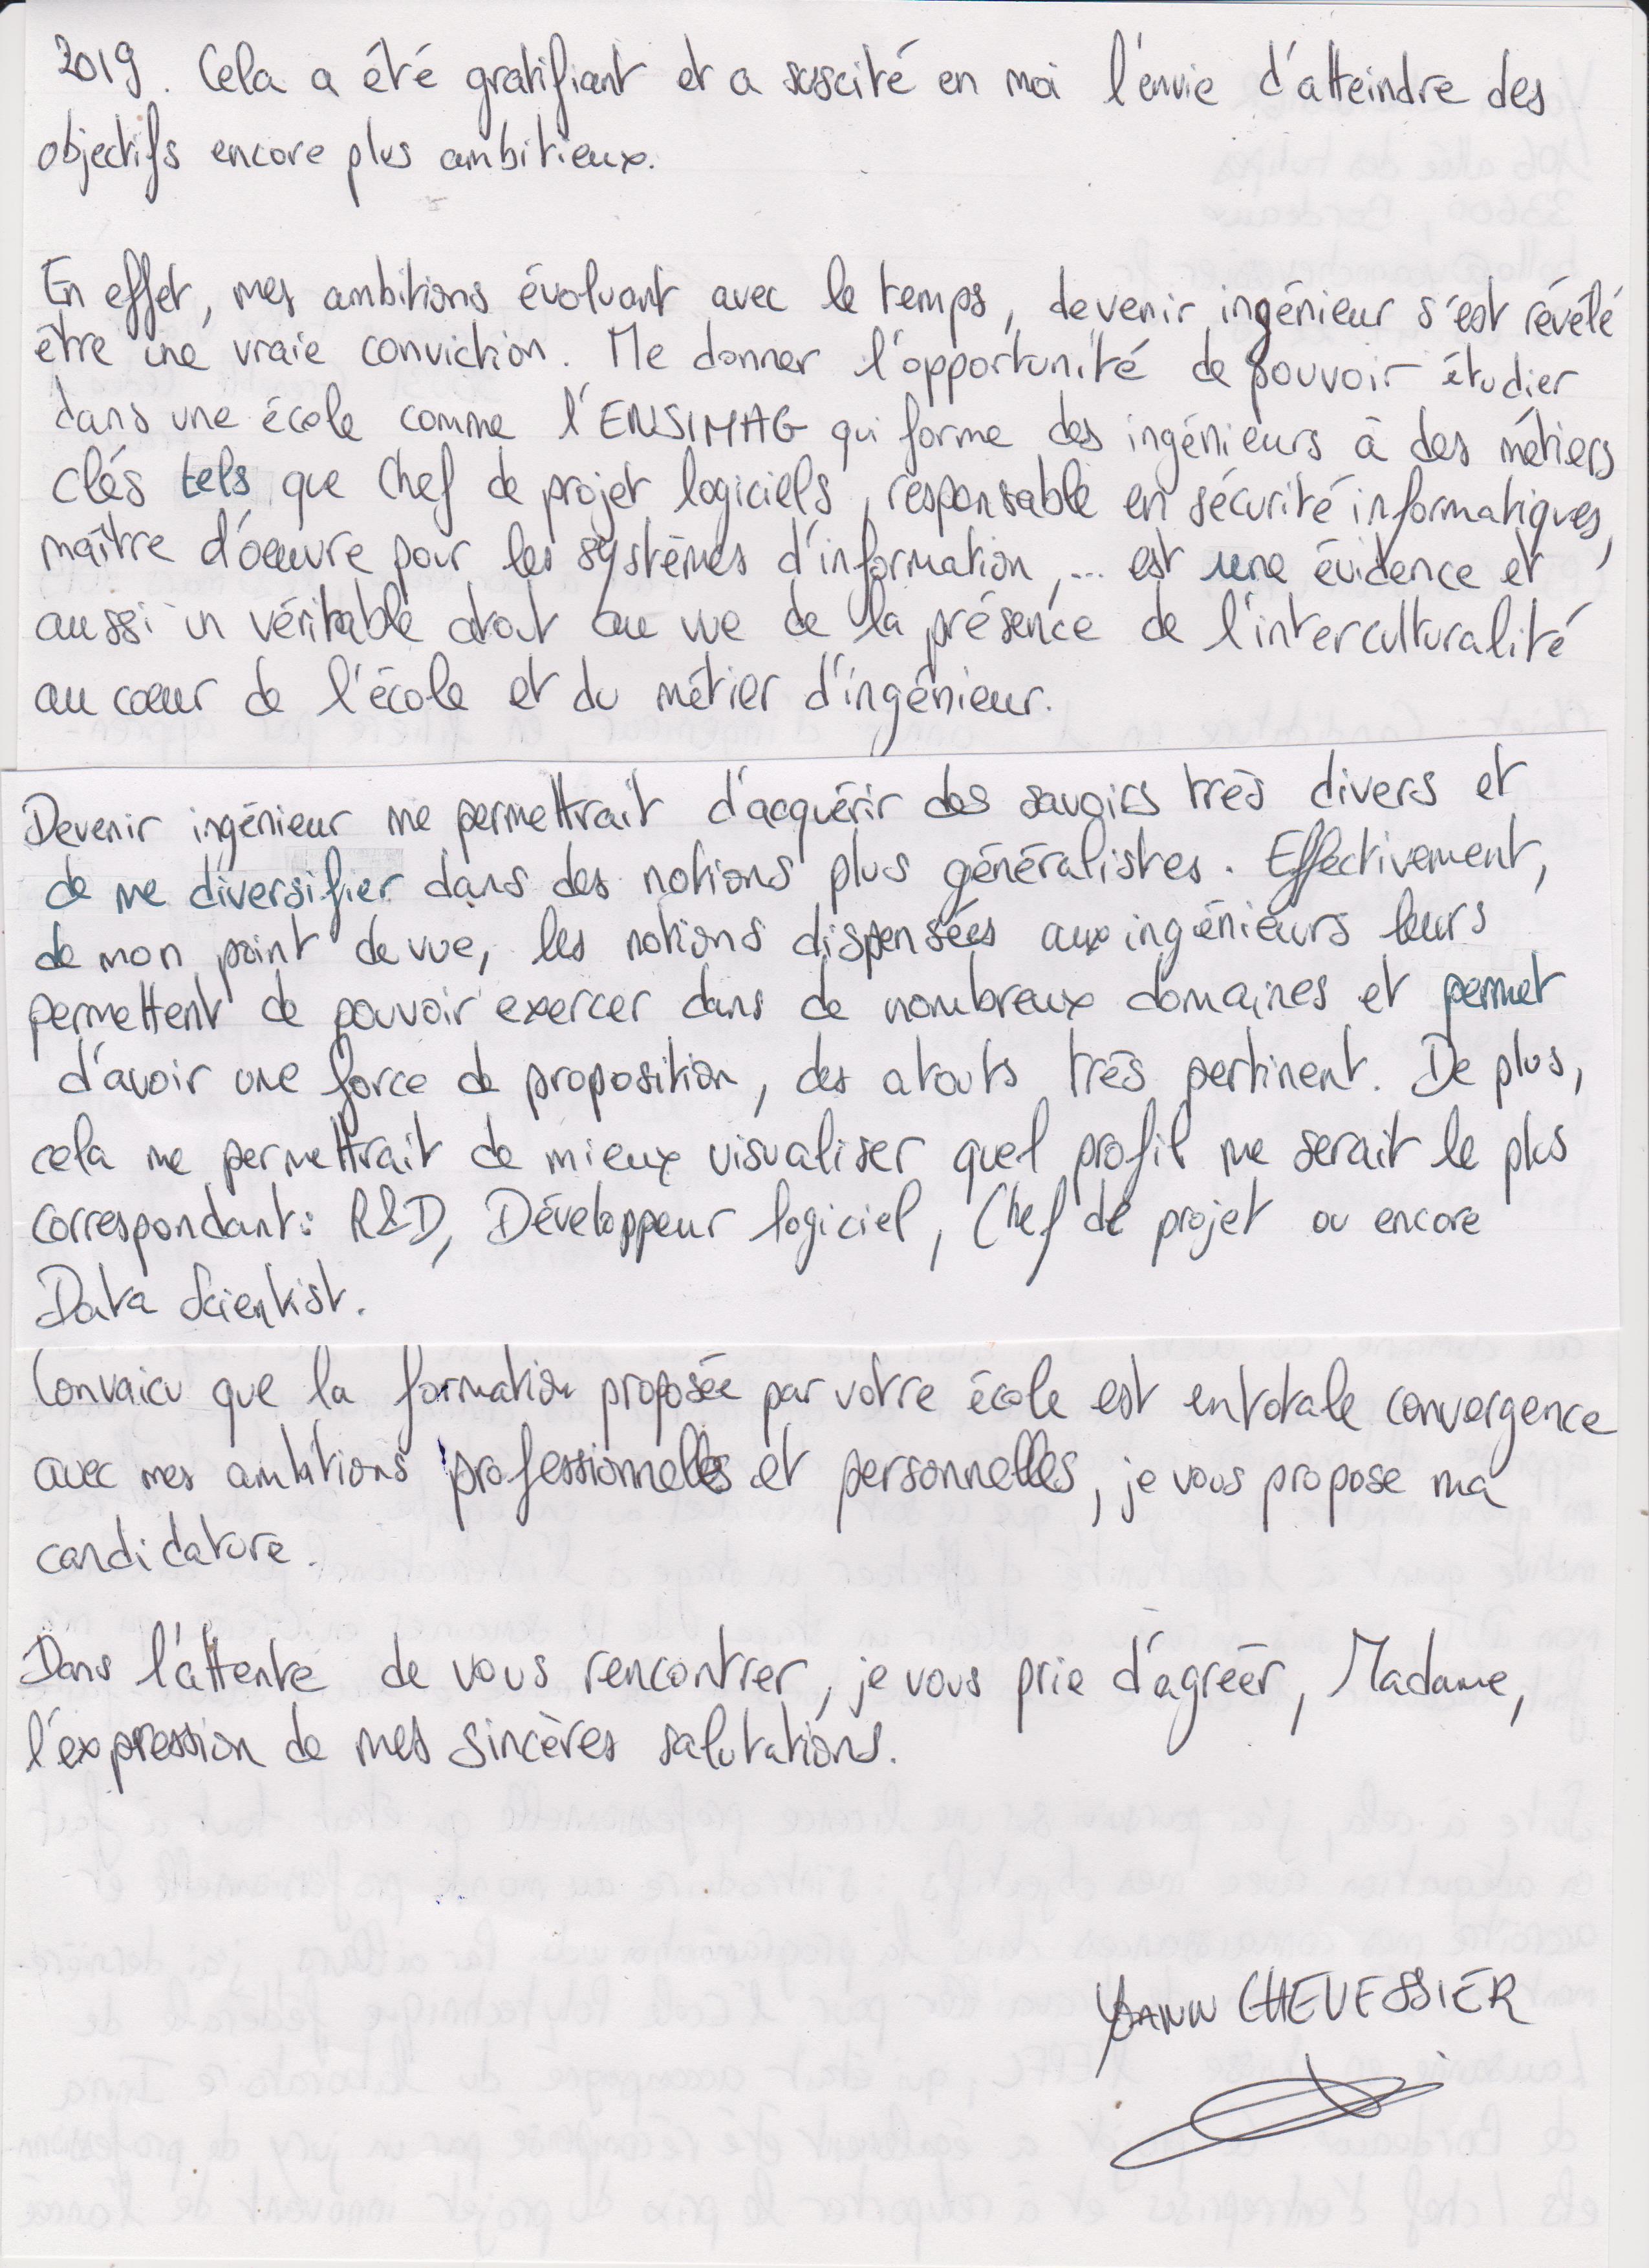 2019. Cela a été gratifiant et a suscité en moi l'envie d'atteindre des
objectifs encore plus ambitieux.
En effet, mes ambitions évoluant avec le temps, devenir ingénieur s'est révélé
être une vraie conviction. Me donner l'opportunité de pouvoir étudier
dans une école comme l'ENSIMAG qui forme des ingénieurs à des métiers
clés tels que Chef de projet logiciels, responsable en sécurité informatiques,
maître d'oeuvre pour les systèmes d'information, ... est une évidence et
aussi un véritable atout au vue de la présence de l'interculturalité
au coeur de l'école et du métier d'ingénieur.
Devenir ingénieur me permettrait d'acquérir des savoirs très divers et
de me diversifier dans des notions plus généralistes. Effectivement,
de mon point de vue, les notions dispensées aux ingénieurs leurs
permettent de pouvoir exercer dans de nombreux domaines et permet
d'avoir une force de proposition, des atouts très pertinent. De plus,
cela me permettrait de mieux visualiser quel profil me serait le plus
correspondant: R&D, Développeur logiciel, Chef de projet ou encore
Data Scientist.
Convaicu que la formation proposée par votre école est en totale convergence
avec mes ambitions professionnelles et personnelles, je vous propose ma
candidature.
Dans l'attente de vous rencontrer, je vous prie d'agréer, Madame,
l'expression de mes sincères salutations.
YOANN CHEVESSIER